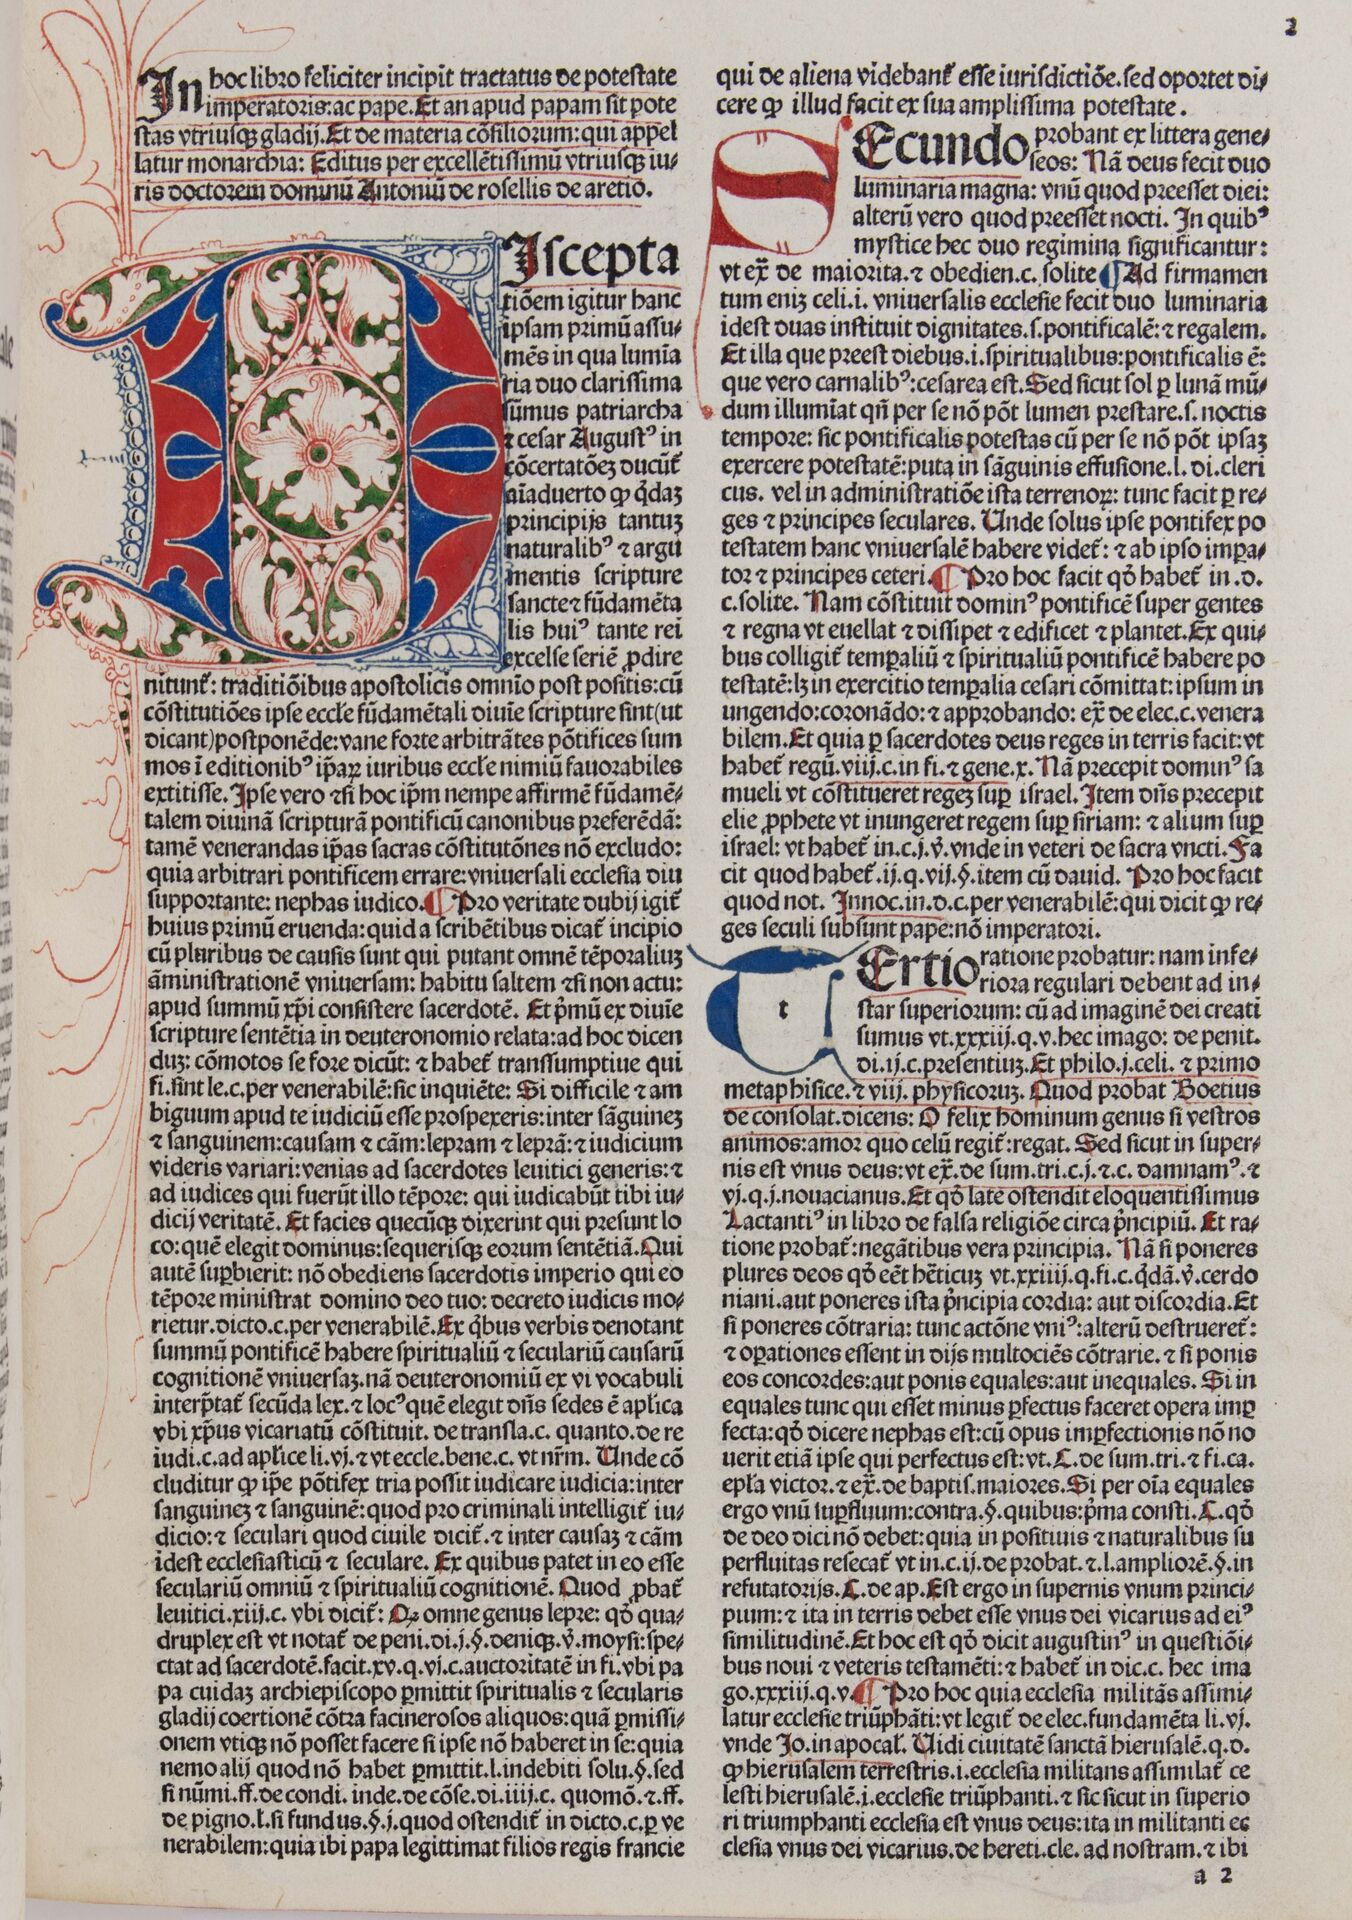 2
In hoc libro feliciter incipit tractatus de potestate
imperatoris: ac pape. Et an apud papam sit pote
stas vtriusqꝫ gladij. Et de materia cōsiliorum: qui appel
latur monarchia: Editus per excellētissimū vtriusqꝫ iu-
ris doctorem dominū Antoniū de rosellis de aretio.
DIscepta
tiōem igitur hanc
ipsam primū assu-
mēs in qua lumīa
ria duo clarissima
sūmus patriarcha
⁊ cesar Augustꝰ in
cōcertatōeꝫ ducūt̄
aīaduerto ꝙ q̄daꝫ
principijs tantuꝫ
naturalibꝰ ⁊ argu
mentis scripture
sancte ⁊ fūdamēta
lis huiꝰ tante rei
excelse seriē ꝓdire
nitunt̄: traditiōibus apostolicis omnīo post positis: cū
cōstitutiōes ipse eccl̄e fūdamētali diuīe scripture sint (ut
dicant) postponēde: vane forte arbitrātes pōtifices sum
mos ī editionibꝰ ip̄aꝝ iuribus eccl̄e nimiū fauorabiles
extitisse. Ipse vero ⁊si hoc ip̄m nempe affirmē fūdamē-
talem diuinā scripturā pontificū canonibus preferēdā:
tamē venerandas ip̄as sacras cōstitutōnes nō excludo:
quia arbitrari pontificem errare: vniuersali ecclesia diu
supportante: nephas iudico. ¶ Pro veritate dubij igit̄
huius primū eruenda: quid a scribētibus dicat̄ incipio
cū pluribus de causis sunt qui putant omnē tēporaliuꝫ
āministrationē vniuersam: habitu saltem ⁊si non actu:
apud summū xp̄i consistere sacerdotē. Et p̄mū ex diuīe
scripture sentētia in deuteronomio relata: ad hoc dicen
duꝫ: cōmotos se fore dicūt: ⁊ habet̄ transsumptiue qui
fi. sint le. c. per venerabilē: sic inquiēte: Si difficile ⁊ am
biguum apud te iudiciū esse prospexeris: inter sāguineꝫ
⁊ sanguinem: causam ⁊ cām: lepram ⁊ leprā: ⁊ iudicium
videris variari: venias ad sacerdotes leuitici generis: ⁊
ad iudices qui fuerūt illo tēpore: qui iudicabūt tibi iu-
dicij veritatē. Et facies quecūqꝫ dixerint qui presunt lo
co: quē elegit dominus: sequerisqꝫ eorum sentētiā. Qui
autē suꝑbierit: nō obediens sacerdotis imperio qui eo
tēpore ministrat domino deo tuo: decreto iudicis mo-
rietur. dicto. c. per venerabilē. Ex q̄bus verbis denotant
summū pontificē habere spiritualiū ⁊ seculariū causarū
cognitionē vniuersaꝫ. nā deuteronomiū ex vi vocabuli
interp̄tat̄ secūda lex. ⁊ locꝰ quē elegit dn̄s sedes ē apl̄ica
vbi xp̄us vicariatū cōstituit. de transla. c. quanto. de re
iudi. c. ad apl̄ice li. vj. ⁊ vt eccle. bene. c. vt nr̄m. Unde cō
cluditur ꝙ ip̄e pōtifex tria possit iudicare iudicia: inter
sanguineꝫ ⁊ sanguinē: quod pro criminali intelligit̄ iu-
dicio: ⁊ seculari quod ciuile dicit̄. ⁊ inter causaꝫ ⁊ cām
idest ecclesiasticū ⁊ seculare. Ex quibus patet in eo esse
seculariū omniū ⁊ spiritualiū cognitionē. Quod ꝓbat̄
leuitici. xiij. c. vbi dicit̄: Qꝫ omne genus lepre: qd̄ qua-
druplex est vt notat̄ de peni. di. j. §. deniqꝫ. v̄. moysi: spe-
ctat ad sacerdotē. facit. xv. q. vj. c. auctoritatē in fi. vbi pa
pa cuidaꝫ archiepiscopo ꝑmittit spiritualis ⁊ secularis
gladij coertionē cōtra facinerosos aliquos: quā ꝑmissi-
onem vtiqꝫ nō posset facere si ipse nō haberet in se: quia
nemo alij quod nō habet ꝑmittit. l. indebiti solu. §. sed
si nūmi. ff. de condi. inde. de cōse. di. iiij. c. quomō. ⁊. ff.
de pigno. l. si fundus. §. j. quod ostendit̄ in dicto. c. ꝑ ve
nerabilem: quia ibi papa legittimat filios regis francie
qui de aliena videbant̄ esse iurisdictiōe. sed oportet di-
cere ꝙ illud facit ex sua amplissima potestate.
SEcundo probant ex littera gene-
seos: Nā deus fecit duo
luminaria magna: vnū quod preesset diei:
alterū vero quod preesset nocti. In quibꝰ
mystice hec duo regimina significantur:
vt ex̄ de maiorita. ⁊ obedien. c. solite ¶ Ad firmamen
tum eniꝫ celi. i. vniuersalis ecclesie fecit duo luminaria
idest duas instituit dignitates. s. pontificalē: ⁊ regalem.
Et illa que preest diebus. i. spiritualibus: pontificalis ē:
que vero carnalibꝰ: cesarea est. Sed sicut sol ꝑ lunā mū-
dum illumīat qn̄ per se nō pōt lumen prestare. s. noctis
tempore: sic pontificalis potestas cū per se nō pōt ipsaꝫ
exercere potestatē: puta in sāguinis effusione. l. di. cleri
cus. vel in administratiōe ista terrenoꝝ: tunc facit ꝑ re-
ges ⁊ principes seculares. Unde solus ipse pontifex po
testatem hanc vniuersalē habere videt̄: ⁊ ab ipso imꝑa-
tor ⁊ principes ceteri. ¶ Pro hoc facit qd̄ habet̄ in. d.
c. solite. Nam cōstituit dominꝰ pontificē super gentes
⁊ regna vt euellat ⁊ dissipet ⁊ edificet ⁊ plantet. Ex qui-
bus colligit̄ temꝑaliū ⁊ spiritualiū pontificē habere po
testatē: lꝫ in exercitio temꝑalia cesari cōmittat: ipsum in
ungendo: coronādo: ⁊ approbando: ex̄ de elec. c. venera
bilem. Et quia ꝑ sacerdotes deus reges in terris facit: vt
habet̄ regū. viij. c. in fi. ⁊ gene. x. Nā precepit dominꝰ sa
mueli vt cōstitueret regeꝫ suꝑ israel. Item dn̄s precepit
elie ꝓphete vt inungeret regem suꝑ siriam: ⁊ alium suꝑ
israel: vt habet̄ in. c. j. v̄. vnde in veteri de sacra vncti. Fa
cit quod habet̄. ij. q. vij. §. item cū dauid. Pro hoc facit
quod not. Innoc. in. d. c. per venerabilē: qui dicit ꝙ re-
ges seculi subsunt pape: nō imperatori.
t
TErtio ratione probatur: nam infe-
riora regulari debent ad in-
star superiorum: cū ad imaginē dei creati
sumus vt. xxxiij. q. v. hec imago: de penit.
di. ij. c. presentiuꝫ. Et philo. j. celi. ⁊ primo
metaphisice. ⁊ viij. physicoruꝫ. Quod probat Boetius
de consolat. dicens: O felix hominum genus si vestros
animos: amor quo celū regit̄: regat. Sed sicut in super-
nis est vnus deus: vt ex̄. de sum. tri. c. j. ⁊. c. damnamꝰ. ⁊
vj. q. j. nouacianus. Et qd̄ late ostendit eloquentissimus
Lactantiꝰ in libro de falsa religiōe circa p̄ncipiū. Et ra-
tione probat̄: negātibus vera principia. Nā si poneres
plures deos qd̄ eēt hēticuꝫ vt. xxiiij. q. fi. c. q̄dā. v̄. cerdo
niani. aut poneres ista p̄ncipia cordia: aut discordia. Et
si poneres cōtraria: tunc actōne vniꝰ: alterū destrueret̄:
⁊ oꝑationes essent in dijs multociēs cōtrarie. ⁊ si ponis
eos concordes: aut ponis equales: aut inequales. Si in
equales tunc qui esset minus ꝑfectus faceret opera imꝑ
fecta: qd̄ dicere nephas est: cū opus imꝑfectionis nō no
uerit etiā ipse qui perfectus est: vt. C. de sum. tri. ⁊ fi. ca.
epl̄a victor. ⁊ ex̄. de baptis. maiores. Si per oīa equales
ergo vnū suꝑfluum: contra. §. quibus: p̄ma consti. C. qd̄
de deo dici nō debet: quia in positiuis ⁊ naturalibus su
perfluitas resecat̄ vt in. c. ij. de probat. ⁊. l. ampliorē. §. in
refutatorijs. C. de ap. Est ergo in supernis vnum princi-
pium: ⁊ ita in terris debet esse vnus dei vicarius ad eiꝰ
similitudinē. Et hoc est qd̄ dicit augustinꝰ in questiōi-
bus noui ⁊ veteris testamēti: ⁊ habet̄ in dic. c. hec ima
go. xxxiij. q. v. ¶ Pro hoc quia ecclesia militās assimi-
latur ecclesie triūphāti: vt legit̄ de elec. fundamēta li. vj.
vnde Jo. in apocal̄. Uidi ciuitatē sanctā hierusalē. q. d.
ꝙ hierusalem terrestris. i. ecclesia militans assimilat̄ ce
lesti hierusalē. i. ecclesie triūphanti. ⁊ sic sicut in superio
ri triumphanti ecclesia est vnus deus: ita in militanti ec
clesia vnus dei vicarius. de hereti. cle. ad nostram. ⁊ ibi
a 2